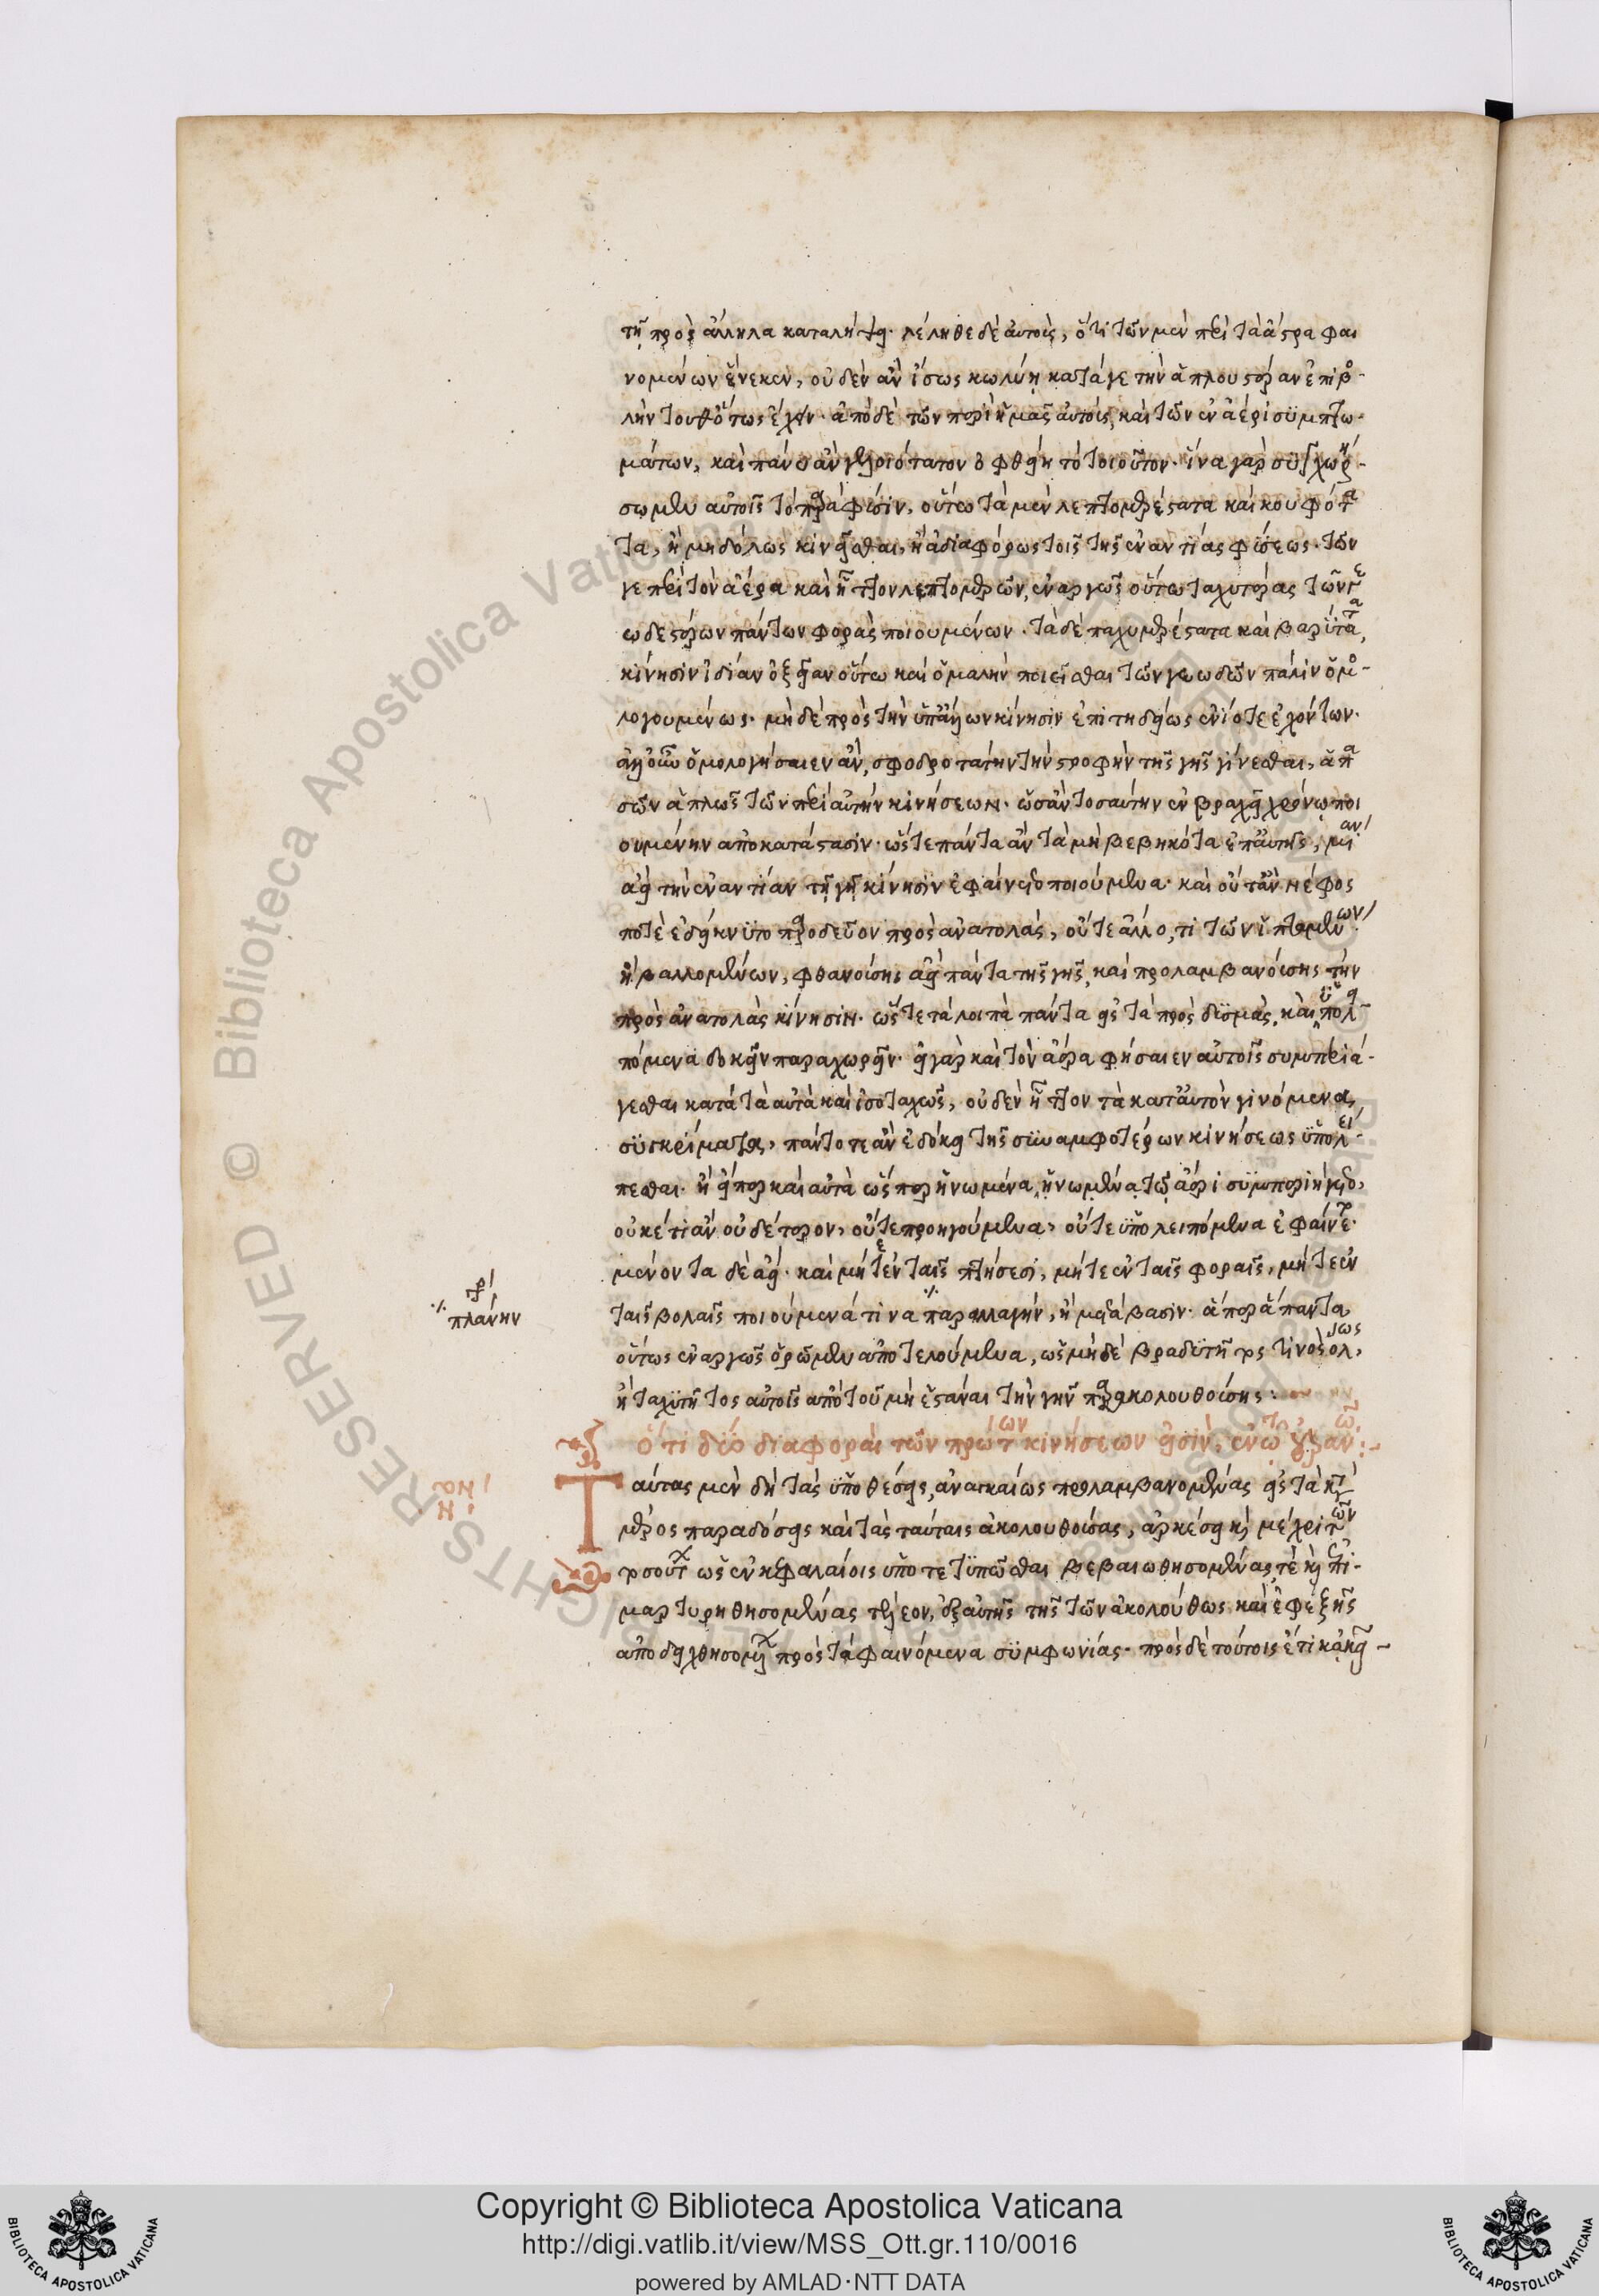 τῇ πρὸς ἄλληλα καταλήψει. λέληθε δὲ αὐτοὺς, ὅτι τῶν μὲν περὶ τὰ ἄστρα φαι
νομένων ἕνεκεν, οὐδὲν ἂν ἴσως κωλύῃ κατά γε τὴν ἁπλουστέραν ἐπιβο-
λὴν τοῦθ' οὕτως ἔχειν. ἀπὸ δὲ τῶν περὶ ἡμᾶς αὐτοὺς, καὶ τῶν ἐν ἀέρι συμπτω-
μάτων, καὶ πάνυ ἂν γελοιότατον ὀφθείη τὸ τοιοῦτον. ἵνα γὰρ συγχωρή-
σωμεν αὐτοῖς τὸ παρὰ φύσιν, οὕτω τὰ μὲν λεπτομερέστατα καὶ κουφότα
τα, ἢ μηδόλως κινεῖσθαι, ἢ ἀδιαφόρως τοῖς τῆς ἐναντίας φύσεως. τῶν
γε περὶ τὸν ἀέρα καὶ ἧττον λεπτομερῶν, ἐναργῶς οὕτω ταχυτέρας τῶν γε
ωδεστέρων πάντων φορὰς ποιουμένων. τὰ δὲ παχυμερέστατα καὶ βαρύτατα,
κίνησιν ἰδίαν ὀξεῖαν οὕτω καὶ ὁμαλὴν ποιεῖσθαι τῶν γεωδῶν πάλιν ὁμο-
λογουμένως. μὴ δὲ πρὸς τὴν ὑπ' ἄλλων κίνησιν ἐπιτηδείως ἐνίοτε ἐχόντων.
ἀλλ' οὖν ὁμολογήσαιεν ἂν, σφοδροτάτην τὴν στροφὴν τῆς γῆς γίνεσθαι, ἁπα
σῶν ἁπλῶς τῶν περὶ αὐτὴν κινήσεων. ὡς ἂν τοσαύτην ἐν βραχεῖ χρόνῳ ποι
ουμένην ἀποκατάστασιν. ὥστε πάντα ἂν τὰ μὴ βεβηκότα ἐπ' αὐτῆς, μίαν
ἀεὶ τὴν ἐναντίαν τῇ γῇ κίνησιν ἐφαίνετο ποιούμενα. καὶ οὔτ' ἂν νέφος
ποτὲ ἐδείκνυτο παροδεῦον πρὸς ἀνατολάς, οὔτε ἄλλο, τι τῶν ἱπταμένων
ἢ βαλλομένων, φθανούσης ἀεὶ πάντα τῆς γῆς, καὶ προλαμβανούσης τὴν
πρὸς ἀνατολὰς κίνησιν. ὥστε τὰ λοιπὰ πάντα εἰς τὰ πρὸς δυσμὰς, καὶ ὑπολει-
πόμενα δοκεῖν παραχωρεῖν. εἰ γὰρ καὶ τὸν ἀέρα φήσαιεν αὐτοῖς συμπεριά-
γεσθαι κατὰ τὰ αὐτὰ καὶ ἰσοταχῶς, οὐδὲν ἧττον τὰ κατ' αὐτὸν γινόμενα
συγκρίματα, πάντοτε ἂν ἐδόκει τῆς συναμφοτέρων κινήσεως ὑπολεί-
πεσθαι. ἢ εἴπερ καὶ αὐτὰ ὥσπερ ἡνωμένα, ἡνωμένα τῷ ἀέρι συμπεριήγετο,
οὐκέτι ἂν οὐδέτερον, οὔτε προηγούμενα, οὔτε ὑπολειπόμενα ἐφαίνετο.
μένοντα δὲ ἀεί. καὶ μήτε ἐν ταῖς πτήσεσι, μήτε ἐν ταῖς φοραῖς, μήτε ἐν
ταῖς βολαῖς ποιούμενά τινα παραλλαγὴν, ἢ μετάβασιν. ἅπερ ἅπαντα,
γρ
πλάνην
οὕτως ἐναργῶς ὁρῶμεν ἀποτελούμενα, ὡς μηδὲ βραδυτῆτος τινὸς ὅλως,
ἢ ταχυτῆτος αὐτοῖς ἀπὸ τοῦ μὴ ἑστάναι τὴν γῆν παρακολουθούσης:
Ὅτι δύο διαφοραὶ τῶν πρώτων κινήσεων εἰσὶν, ἐν τῷ οὐρανῷ:
Ταύτας μὲν δὴ τὰς ὑποθέσεις, ἀναγκαίως προλαμβανομένας εἰς τὰ κατὰ
μέρος παραδόσεις καὶ τὰς ταύταις ἀκολουθούσας, ἀρκέσει καὶ μέχρι τῶν
τοσούτων ὡς ἐν κεφαλαίοις ὑποτετυπῶσθαι βεβαιωθησομένας τὲ καὶ ἐπι-
μαρτυρηθησομένας τέλεον, ἐξ αὐτῆς τῆς τῶν ἀκολούθως καὶ ἐφεξῆς
ἀποδειχθησομένων πρὸς τὰ φαινόμενα συμφωνίας. πρὸς δὲ τούτοις ἔτι κἀκεῖ-
Copyright © Biblioteca Apostolica Vaticana
http://digi.vatlib.it/view/MSS_Ott.gr.110/0016
powered by AMLAD·NTT DATA